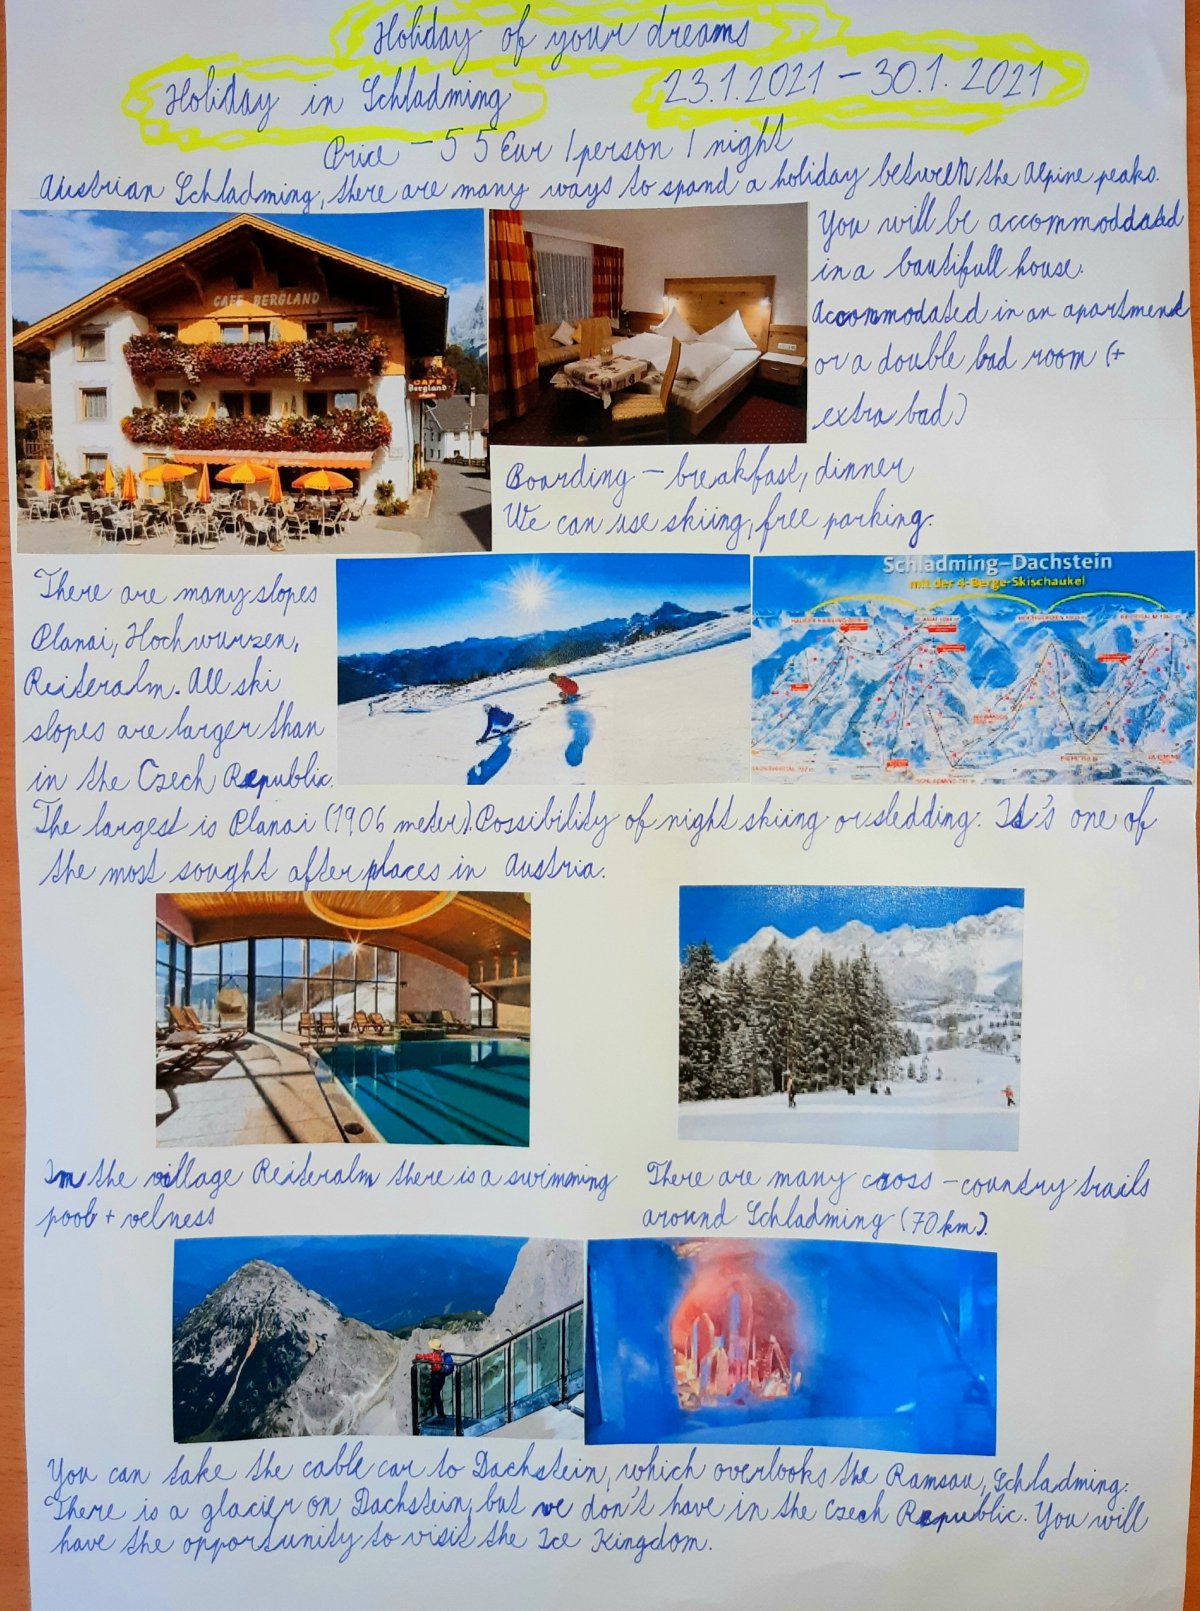 Holiday of your dreams
Holiday in Schladming 23.1.2021 – 30.1.2021
Price – 55 Eur / person / night
Austrian Schladming, there are many ways to spand a holiday between the Alpine peaks.
CAFE BERGLAND
CAFE
Bergland
You will be accommoddated
in a bautifull house.
Accommodated in an apartment
or a double bad room (+
extra bad)
Boarding – breakfast, dinner
We can use skiing, free parking.
There are many slopes
Planai, Hochwurzen,
Reiteralm. All ski
slopes are larger than
in the Czech Republic.
Schladming–Dachstein
mit der 4-Berge-Skischaukel
The largest is Planai (1906 meter). Possibility of night skiing or sledding. It's one of
the most sought after places in Austria.
In the village Reiteralm there is a swimming
pool + velness
There are many cross – country trails
around Schladming (70 km).
You can take the cable car to Dachstein, which overlooks the Ramsau, Schladming.
There is a glacier on Dachstein, but we don't have in the Czech Republic. You will
have the opportunity to visit the Ice Kingdom.